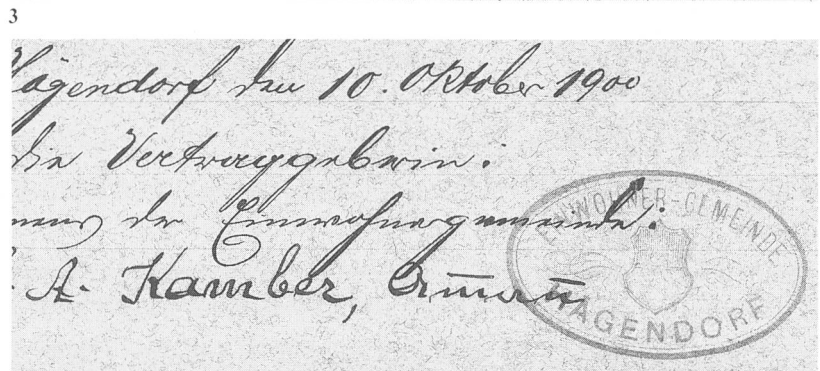 3
Hägendorf den 10. Oktober 1900
die Vertraggeberin:
mens der Einwohnergemeinde:
A. Kamber, Amañ
EINWOHNER-GEMEINDE
HÄGENDORF